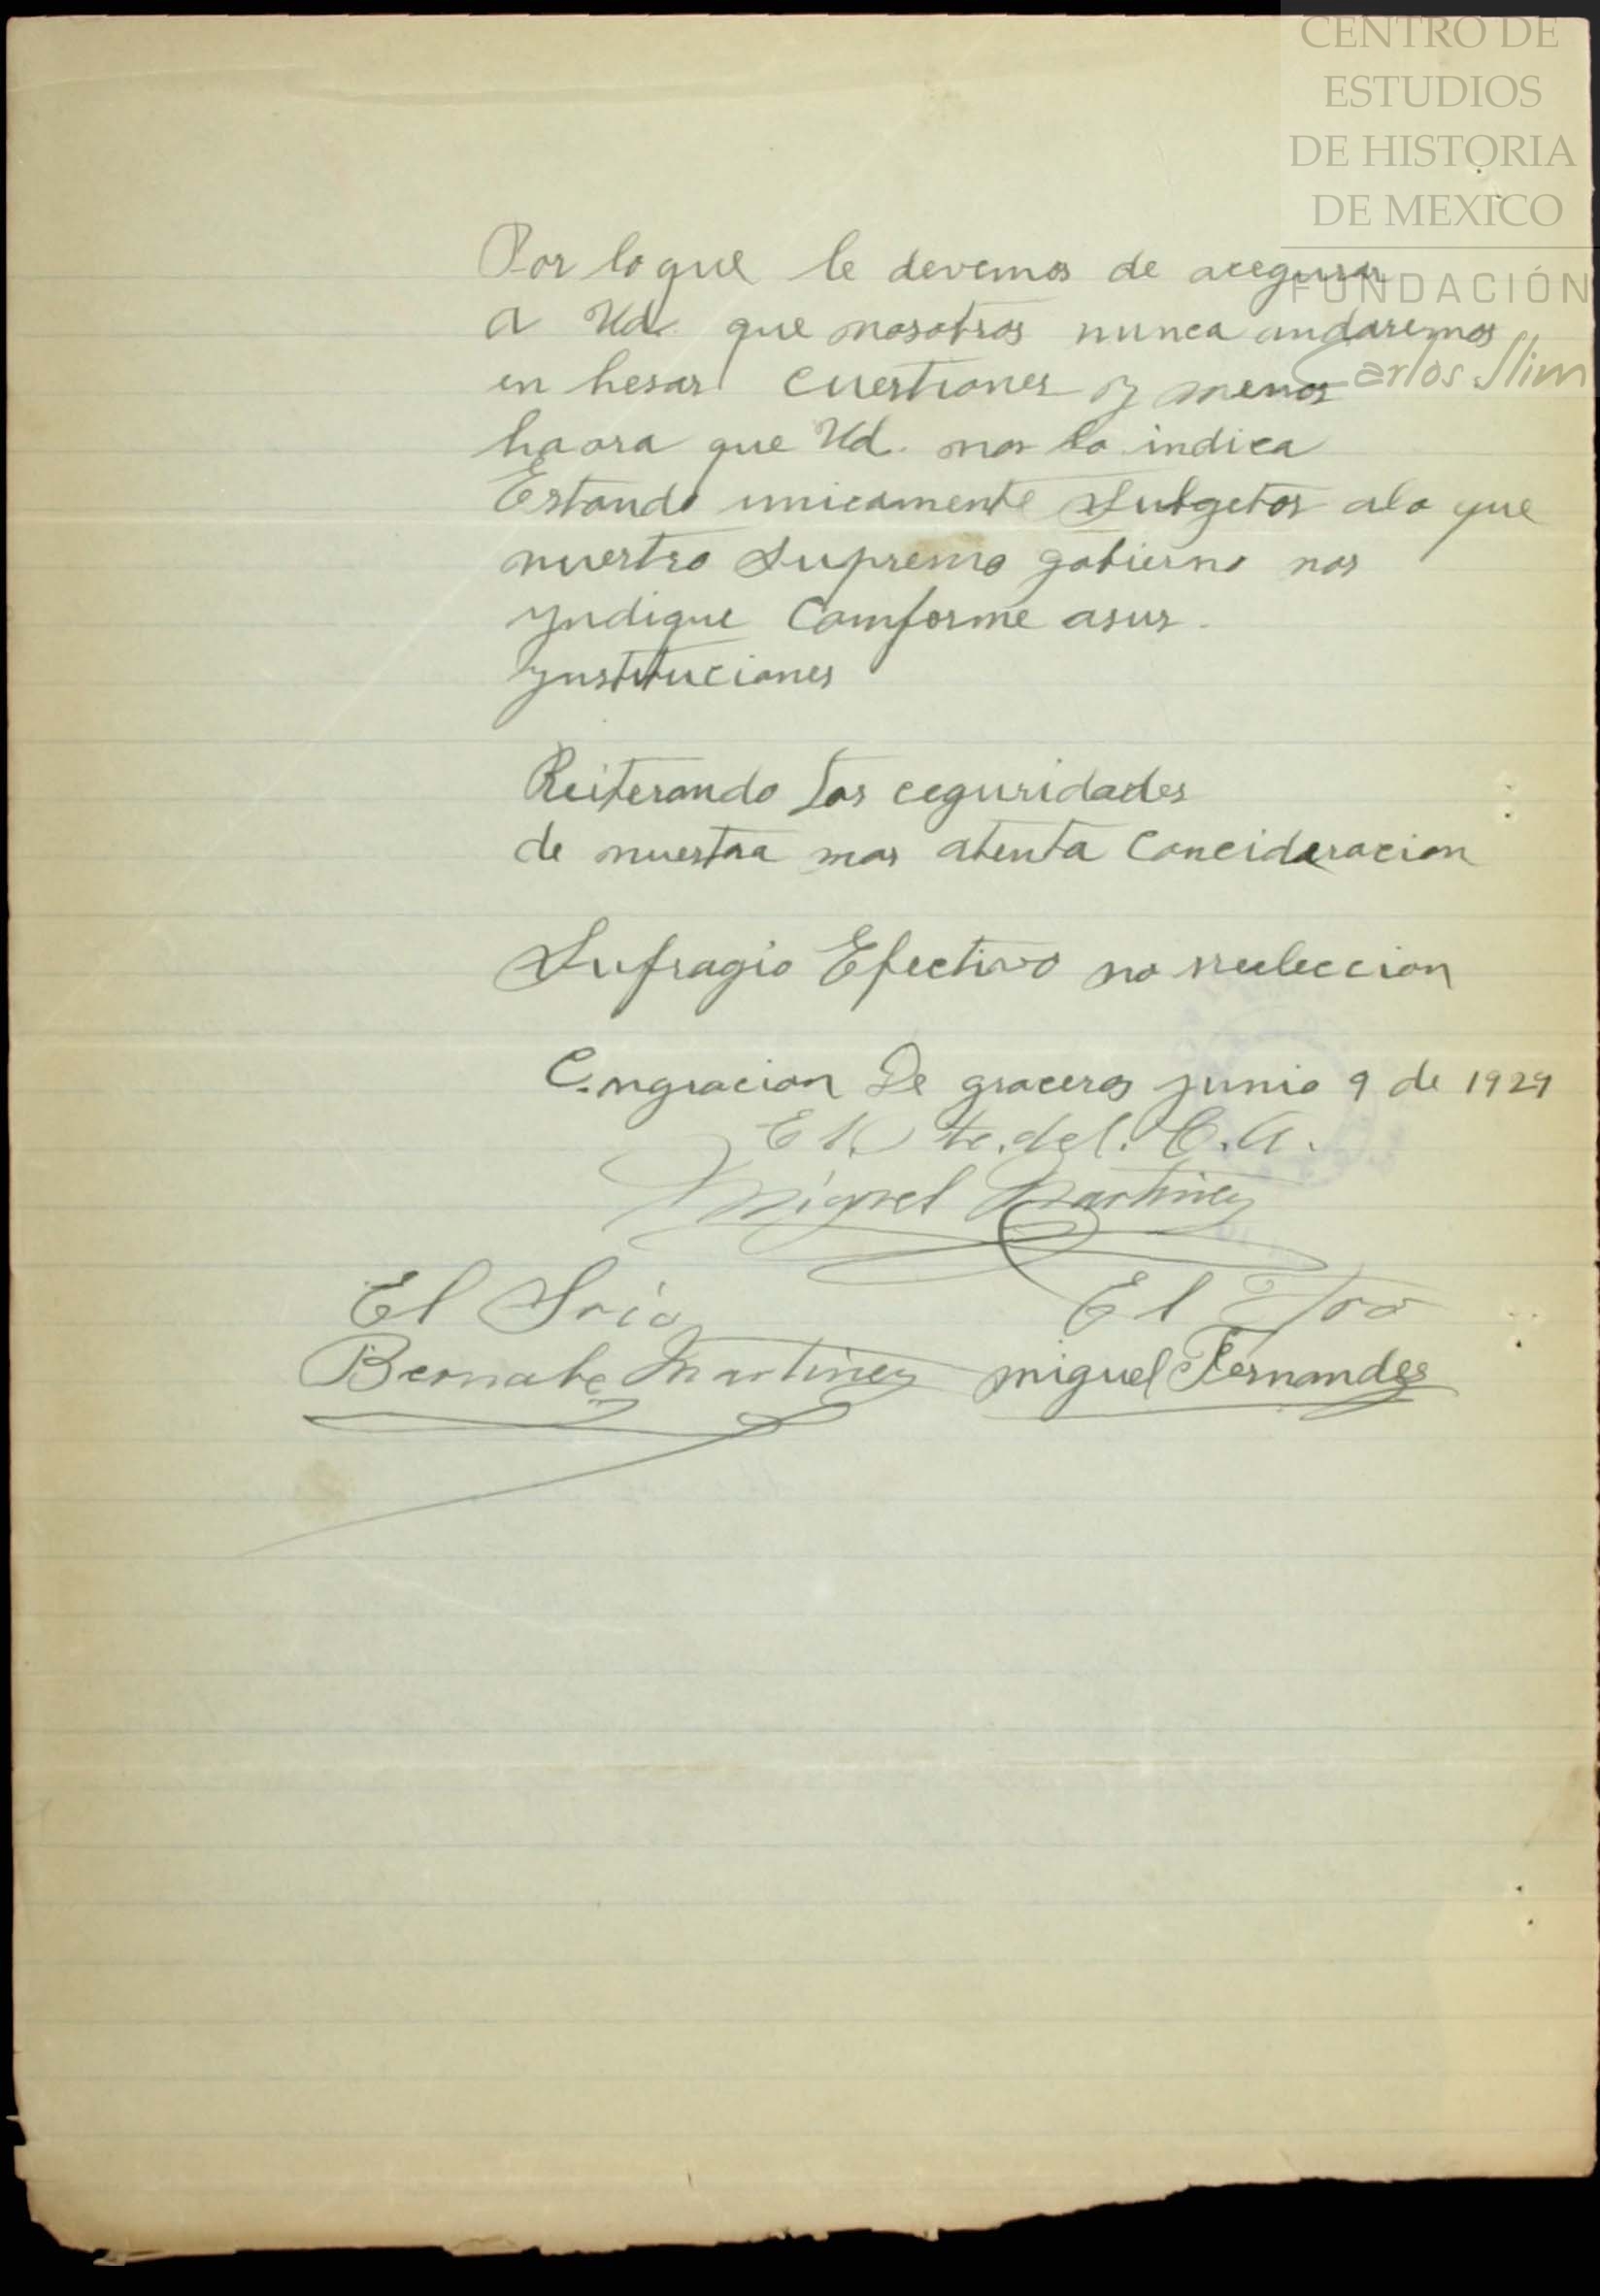 CENTRO DE
ESTUDIOS
DE HISTORIA
DE MEXICO
FUNDACIÓN
Carlos Slim
Por lo que le devemos de acegurar
a Ud. que nosotros nunca andaremos
en hesas cuestiones y menos
haora que Ud. nos lo indica
Estando unicamente Subgetos alo que
nuestro Supremo gobierno nos
yndique Comforme asus.
ynstituciones
Reiterando Las ceguridades
de nuestra mas atenta Concideracion
Sufragio Efectivo no rreeleccion
C.ongracion De graceros junio 9 de 1929
El P te. del. C. A.
Miguel Martinez
El Srio
El Tro
Bernabe Martinez
miguel Fernandes